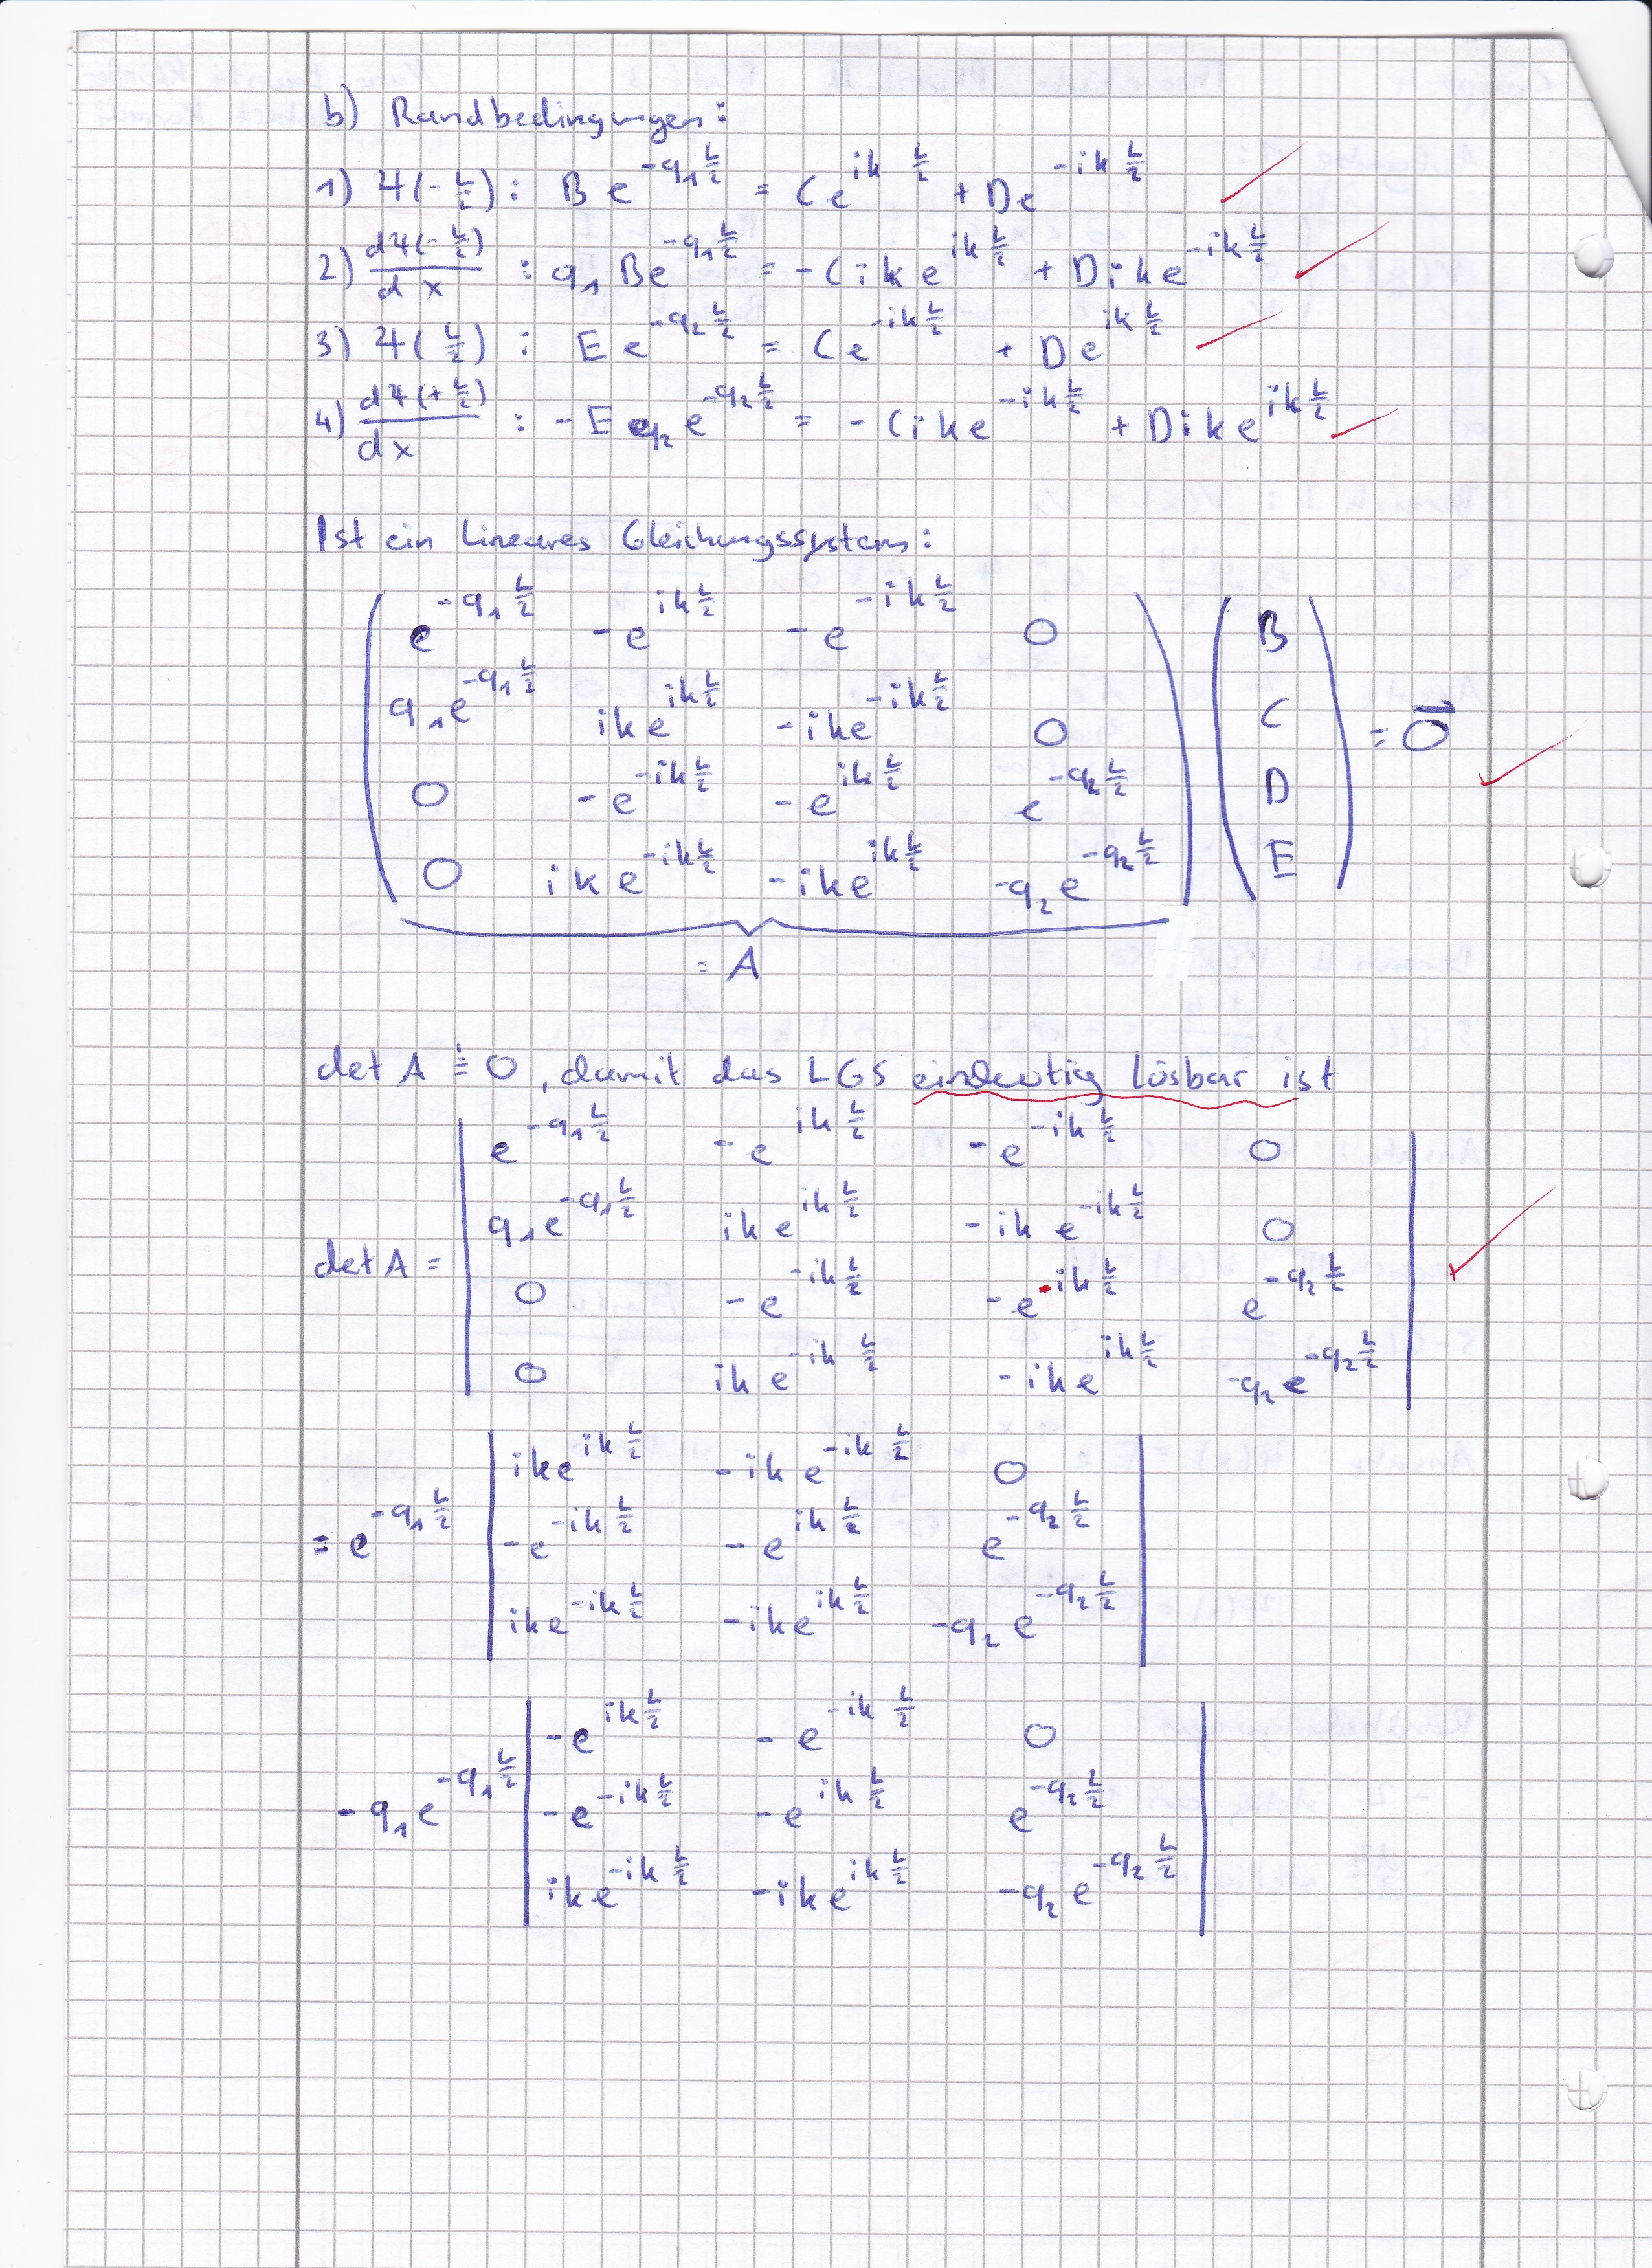 b) Randbedingungen:
1) ψ(-L/2): B e^{-q₁ L/2} = C e^{ik L/2} + D e^{-ik L/2}
2) dψ(-L/2)/dx : q₁ B e^{-q₁ L/2} = -C i k e^{ik L/2} + D i k e^{-ik L/2}
3) ψ(L/2) : E e^{-q₂ L/2} = C e^{-ik L/2} + D e^{ik L/2}
4) dψ(+L/2)/dx : -E q₂ e^{-q₂ L/2} = -C i k e^{-ik L/2} + D i k e^{ik L/2}
Ist ein Lineares Gleichungssystem:
( e^{-q₁ L/2}  -e^{ik L/2}  -e^{-ik L/2}  0 ) ( B )
( q₁e^{-q₁ L/2}  ike^{ik L/2}  -ike^{-ik L/2}  0 ) ( C ) = 0⃗
( 0  -e^{-ik L/2}  -e^{ik L/2}  e^{-q₂ L/2} ) ( D )
( 0  ike^{-ik L/2}  -ike^{ik L/2}  -q₂e^{-q₂ L/2} ) ( E )
= A
det A ≝ 0, damit das LGS eindeutig lösbar ist
| e^{-q₁ L/2}  -e^{ik L/2}  -e^{-ik L/2}  0 |
| q₁e^{-q₁ L/2}  ike^{ik L/2}  -ike^{-ik L/2}  0 |
det A = | 0  -e^{-ik L/2}  -e^{-ik L/2}  e^{-q₂ L/2} |
| 0  ike^{-ik L/2}  -ike^{ik L/2}  -q₂e^{-q₂ L/2} |
| ike^{ik L/2}  -ike^{-ik L/2}  0 |
= e^{-q₁ L/2} | -e^{-ik L/2}  -e^{ik L/2}  e^{-q₂ L/2} |
| ike^{-ik L/2}  -ike^{ik L/2}  -q₂e^{-q₂ L/2} |
| -e^{ik L/2}  -e^{-ik L/2}  0 |
-q₁e^{-q₁ L/2} | -e^{-ik L/2}  -e^{ik L/2}  e^{-q₂ L/2} |
| ike^{-ik L/2}  -ike^{ik L/2}  -q₂e^{-q₂ L/2} |